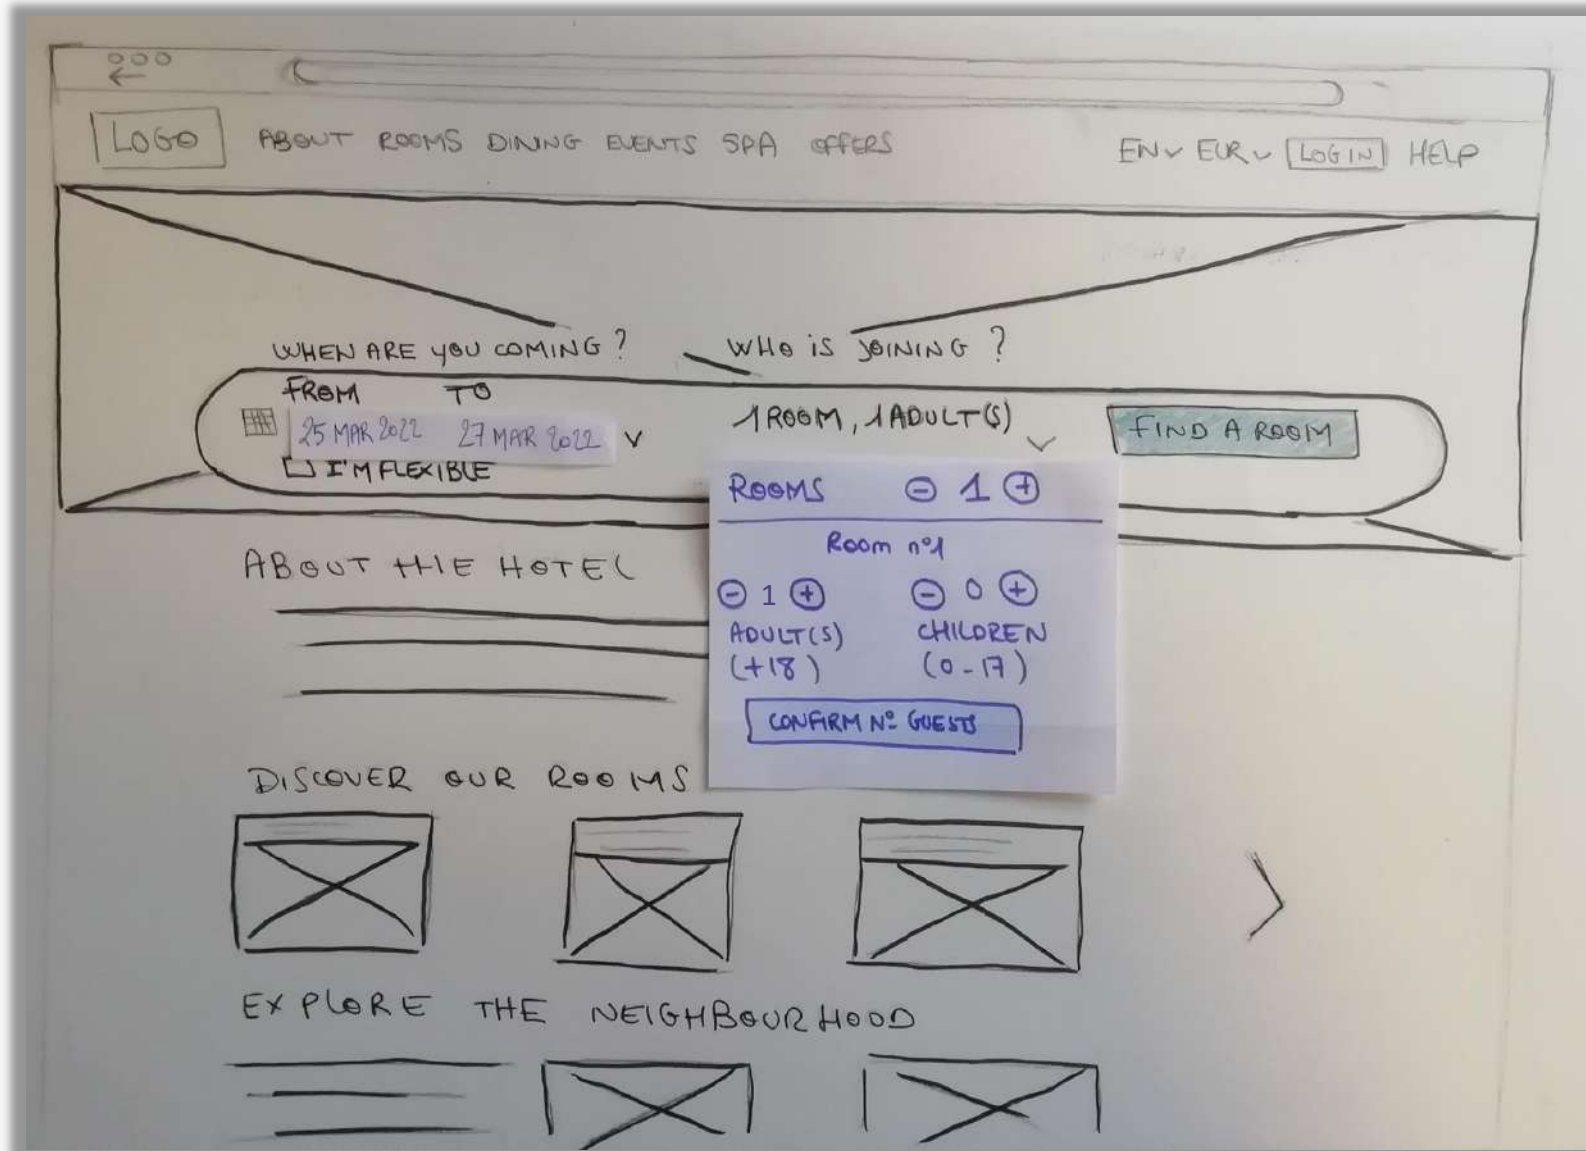 LOGO ABOUT ROOMS DINING EVENTS SPA OFFERS EN EUR LOGIN HELP
WHEN ARE YOU COMING? WHO IS JOINING?
FROM TO
25 MAR 2022 27 MAR 2022
1 ROOM, 1 ADULT(S)
FIND A ROOM
I'M FLEXIBLE
ROOMS - 1 +
Room nº1
- 1 + - 0 +
ADULT(S) CHILDREN
(+18) (0-17)
CONFIRM Nº GUESTS
ABOUT THE HOTEL
DISCOVER OUR ROOMS
EXPLORE THE NEIGHBOURHOOD